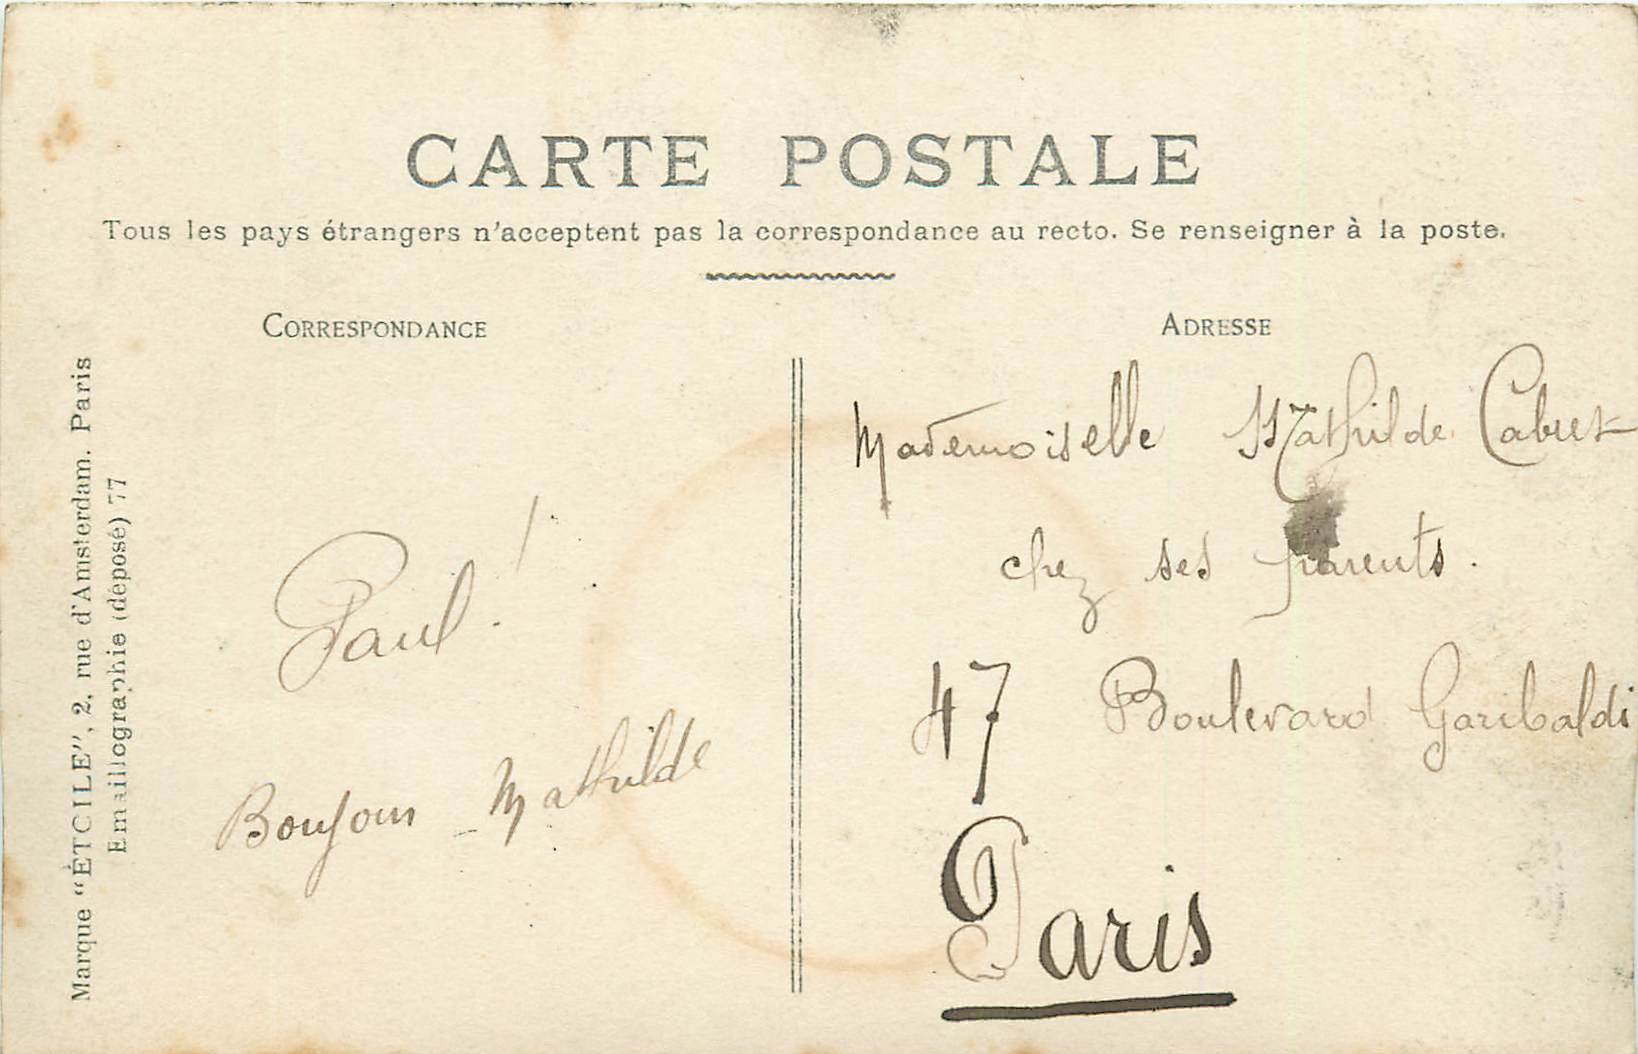 CARTE POSTALE
Tous les pays étrangers n'acceptent pas la correspondance au recto. Se renseigner à la poste.
CORRESPONDANCE
Paul!
Bonjour Mathilde
ADRESSE
Mademoiselle Mathilde Cabret
chez ses parents.
47 Boulevard Garibaldi
Paris
Marque "ÉTCILE", 2, rue d'Amsterdam. Paris
Emaillographie (déposé) 77